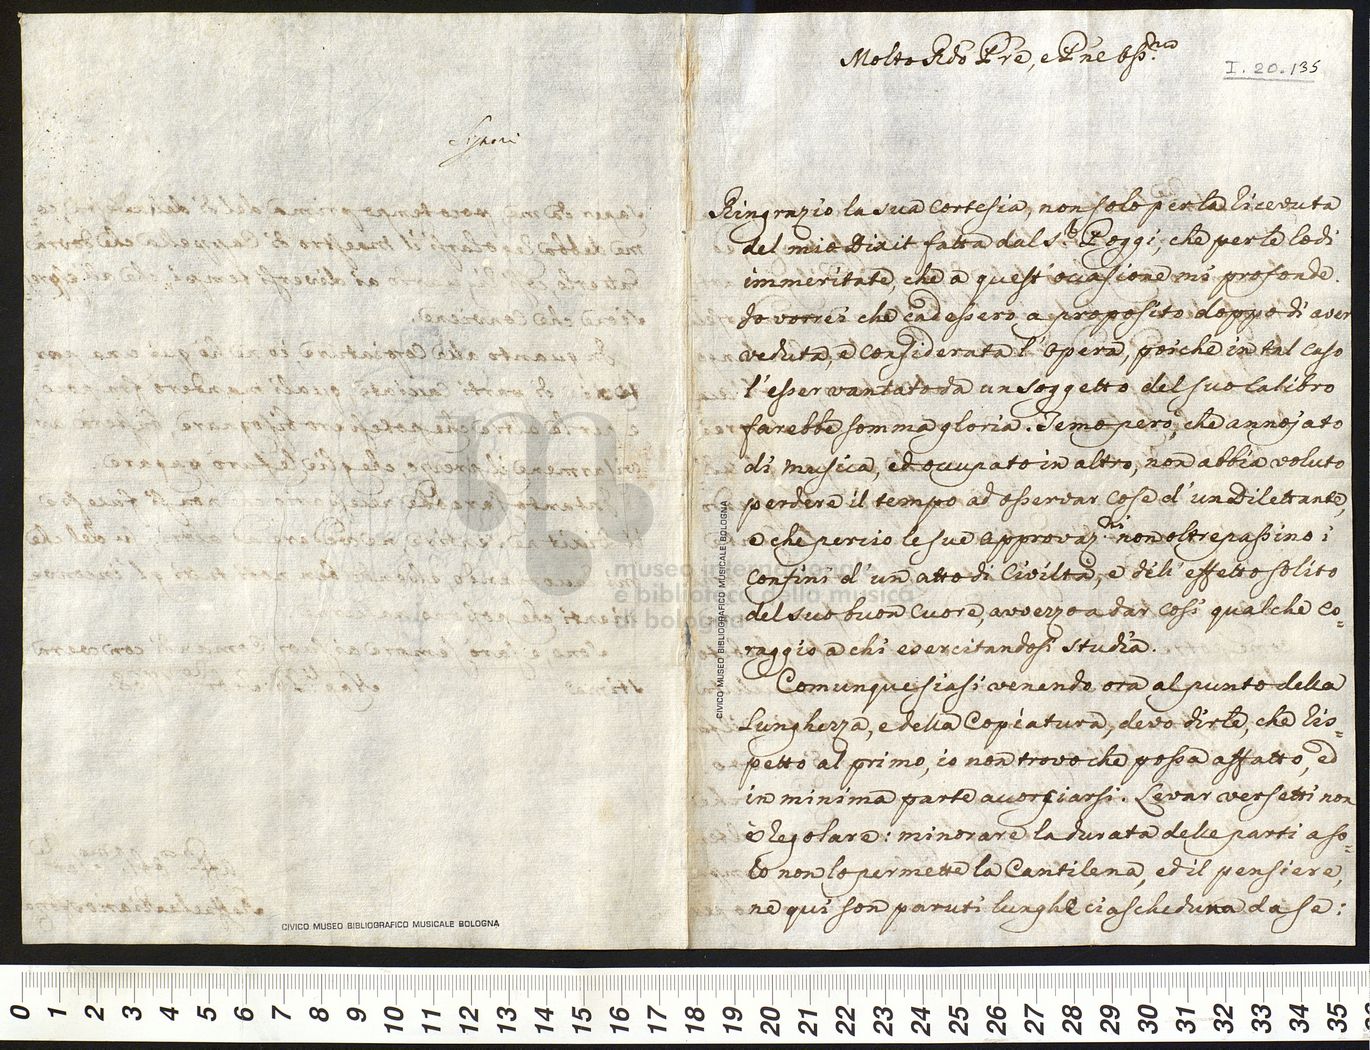 Signori
CIVICO MUSEO BIBLIOGRAFICO MUSICALE BOLOGNA
Molto Rdo Pre, e Pne Oss.mo
I. 20. 135
Ringrazio la sua cortesia, non solo per la riceuuta
del mio Dixit fatta dal S.r Poggi, che per le lodi
immeritate, che a quest'occasione mi profonde.
Io vorrei che cadessero a proposito doppo di aver
veduta, e considerata l'opera, poiche in tal caso
l'esser vantato da un soggetto del suo calibro
farebbe somma gloria. Temo però, che annojato
di musica, ed occupato in altro, non abbia voluto
perdere il tempo ad osservar cose d'un Dilettante,
e che perciò le sue approvaz.ni non oltrepassino i
confini d'un atto di Civiltà, e dell'effetto solito
del suo buon cuore, avvezzo a dar così qualche co-
raggio a chi esercitandosi studia.
Comunque siasi venendo ora al punto della
lunghezza, e della Copiatura, devo dirle, che ris-
petto al primo, io non trovo che possa affatto, ed
in minima parte accorciarsi. Levar versetti non
è regolare: minorare la durata delle parti a so-
lo non lo permette la Cantilena, ed il pensiere,
ne qui son paruti lunghe ciascheduna da se:
CIVICO MUSEO BIBLIOGRAFICO MUSICALE BOLOGNA
museo internazionale
e biblioteca della musica
di bologna
0 1 2 3 4 5 6 7 8 9 10 11 12 13 14 15 16 17 18 19 20 21 22 23 24 25 26 27 28 29 30 31 32 33 34 35